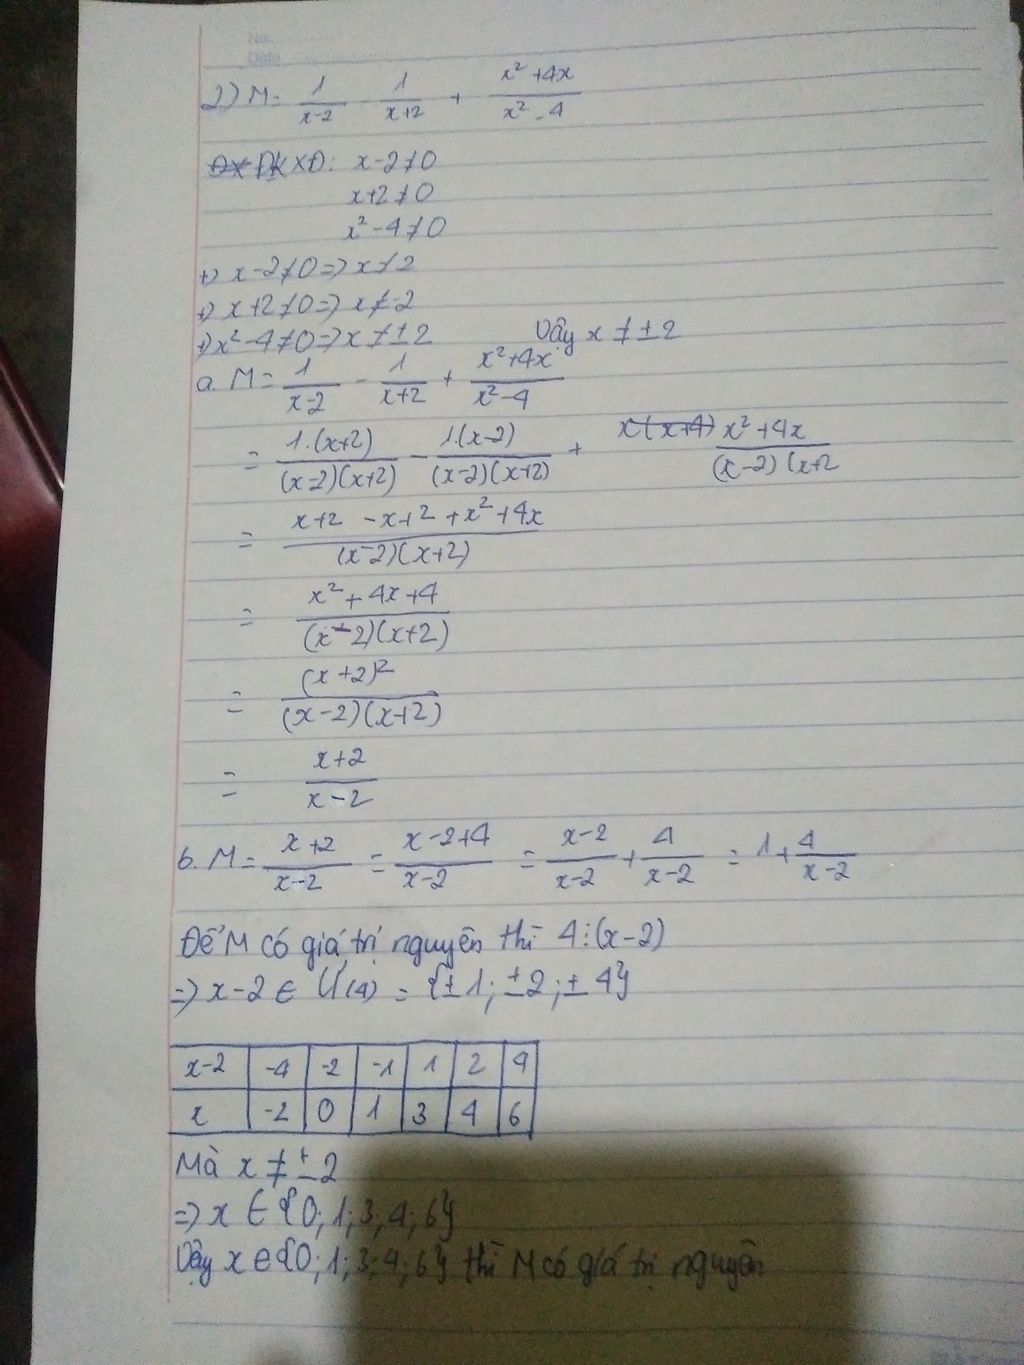 No.
Date
2) M = 1/(x-2) - 1/(x+2) + (x²+4x)/(x²-4)
ĐKXĐ: x-2≠0
x+2≠0
x²-4≠0
+) x-2≠0 => x≠2
+) x+2≠0 => x≠-2
+) x²-4≠0 => x≠±2 Vậy x≠±2
a. M = 1/(x-2) - 1/(x+2) + (x²+4x)/(x²-4)
= 1.(x+2)/(x-2)(x+2) - 1.(x-2)/(x-2)(x+2) + x(x+4) x²+4x/(x-2)(x+2
= (x+2 -x+2 +x²+4x)/(x-2)(x+2)
= (x²+4x+4)/(x-2)(x+2)
= (x+2)²/(x-2)(x+2)
= (x+2)/(x-2)
b. M = (x+2)/(x-2) = (x-2+4)/(x-2) = (x-2)/(x-2) + 4/(x-2) = 1 + 4/(x-2)
Để M có giá trị nguyên thì 4⋮(x-2)
=> x-2 ∈ Ư(4) = {±1; ±2; ±4}
x-2 -4 -2 -1 1 2 4
x -2 0 1 3 4 6
Mà x≠±2
=> x ∈ {0; 1; 3; 4; 6}
Vậy x ∈ {0; 1; 3; 4; 6} thì M có giá trị nguyên